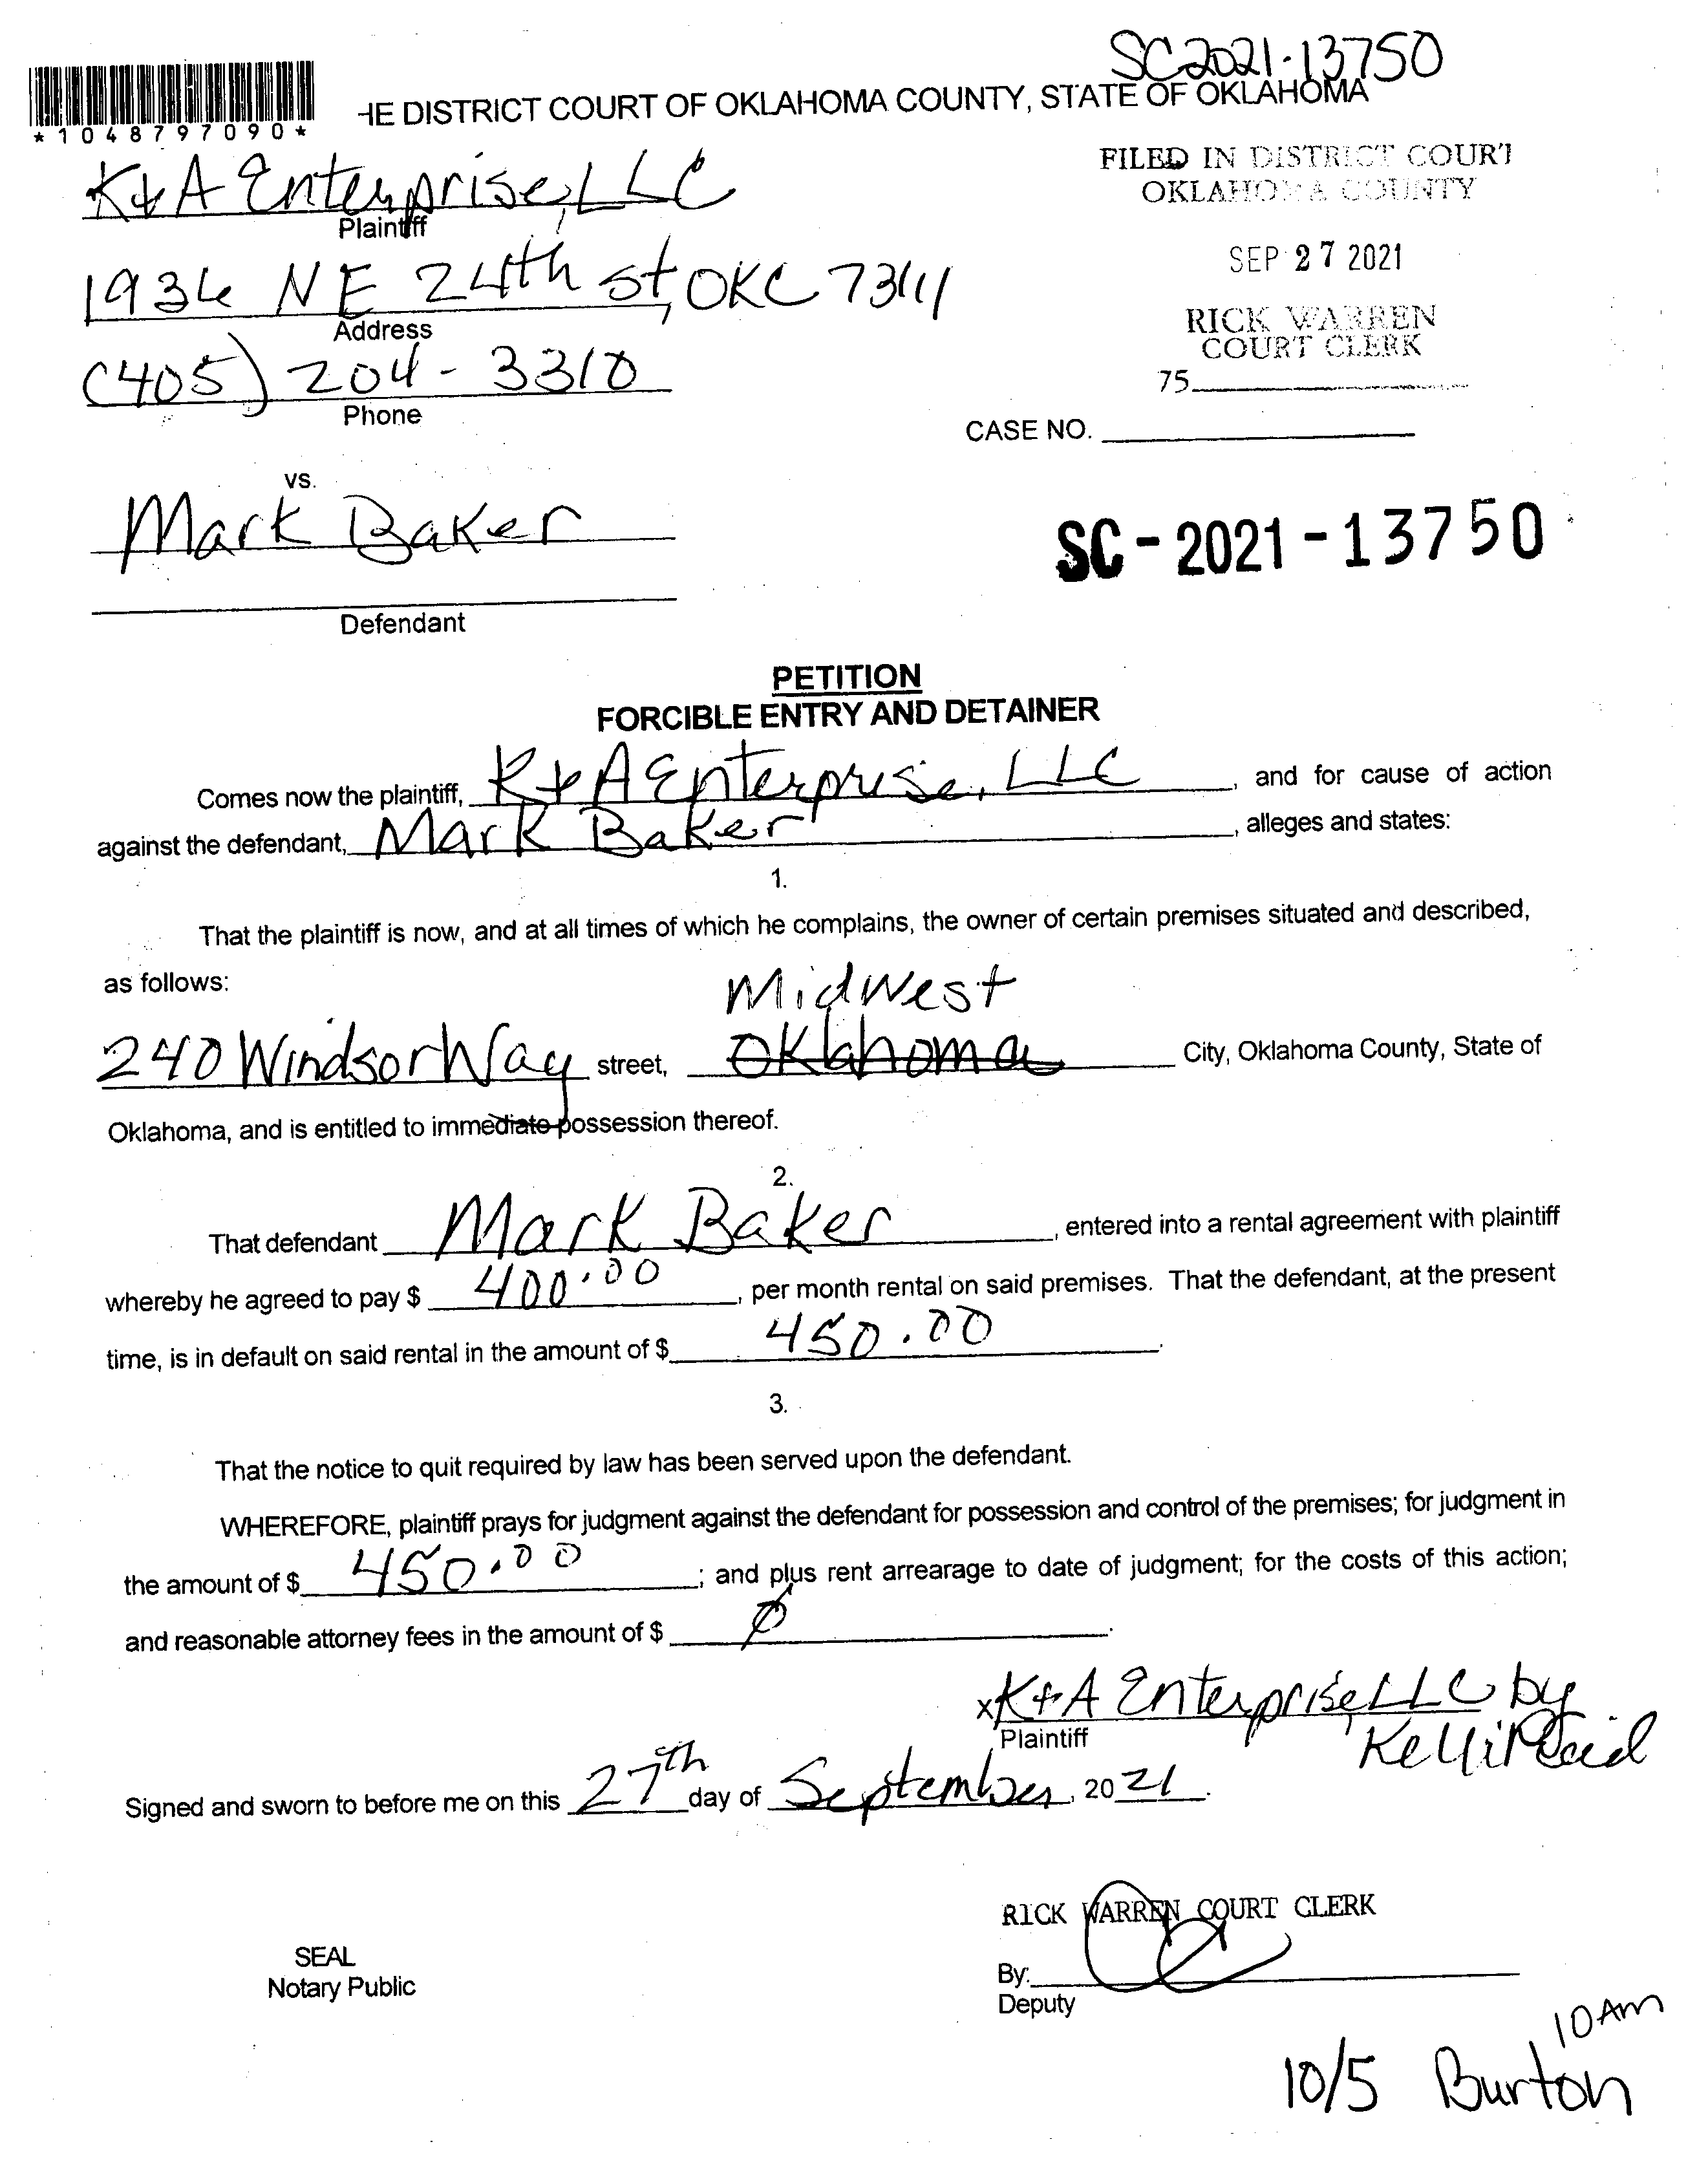 SC2021-13750
*1048797090*
HE DISTRICT COURT OF OKLAHOMA COUNTY, STATE OF OKLAHOMA
K&A Enterprise, LLC
Plaintiff
FILED IN DISTRICT COURT
OKLAHOMA COUNTY
SEP 27 2021
RICK WARREN
COURT CLERK
75
NE 24th St, OKC 73111
Address
(405) 204-3310
Phone
CASE NO.
vs.
Mark Baker
SC-2021-13750
Defendant
PETITION
FORCIBLE ENTRY AND DETAINER
Comes now the plaintiff, K&A Enterprise, LLC, and for cause of action
against the defendant, Mark Baker, alleges and states:
1.
That the plaintiff is now, and at all times of which he complains, the owner of certain premises situated and described,
as follows:
Midwest
240 Windsor Way street, Oklahoma City, Oklahoma County, State of
Oklahoma, and is entitled to immediate possession thereof.
2.
That defendant Mark Baker, entered into a rental agreement with plaintiff
whereby he agreed to pay $ 400.00, per month rental on said premises. That the defendant, at the present
time, is in default on said rental in the amount of $ 450.00.
3.
That the notice to quit required by law has been served upon the defendant.
WHEREFORE, plaintiff prays for judgment against the defendant for possession and control of the premises; for judgment in
the amount of $ 450.00; and plus rent arrearage to date of judgment; for the costs of this action;
and reasonable attorney fees in the amount of $ Ø.
x K+A Enterprise, LLC by
Plaintiff
Kelli
Signed and sworn to before me on this 27th day of September, 2021.
RICK WARREN COURT CLERK
SEAL
Notary Public
By:
Deputy
10AM
10/5 Burton